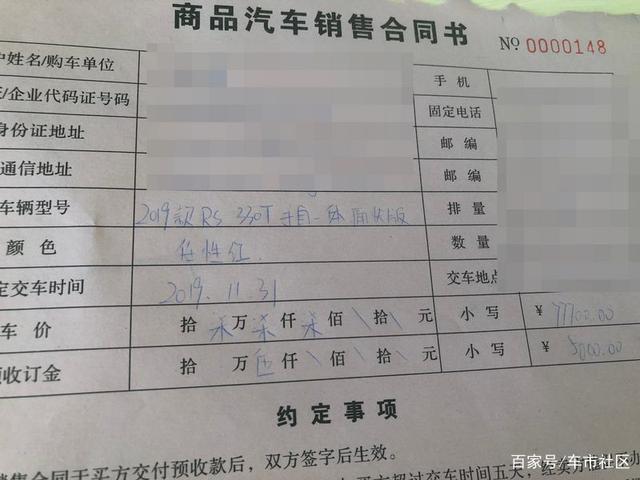 商品汽车销售合同书
№ 0000148
户姓名/购车单位
手 机
证/企业代码证号码
固定电话
身份证地址
邮 编
通信地址
邮 编
车辆型号 2019款 RS 330T 手自一体 版
排 量
颜 色 任性红
数 量
定交车时间 2019.11.31
交车地点
车 价 拾 柒 万 柒 仟 柒 佰 \ 拾 \ 元 小 写 ¥ 77700.00
预收订金 拾 万 伍 仟 \ 佰 \ 拾 \ 元 小 写 ¥ 5000.00
约定事项
销售合同于买方交付预收款后，双方签字后生效。
买方超过交车时间五天，经卖方
百家号/车市社区